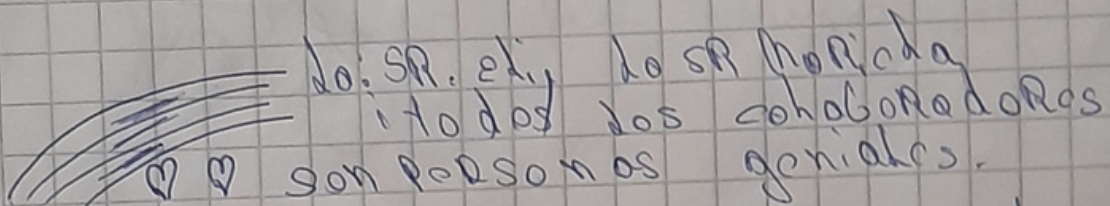 lo: SR. eli, la SR Moricela
itodos los colaboradores
son personas geniales.